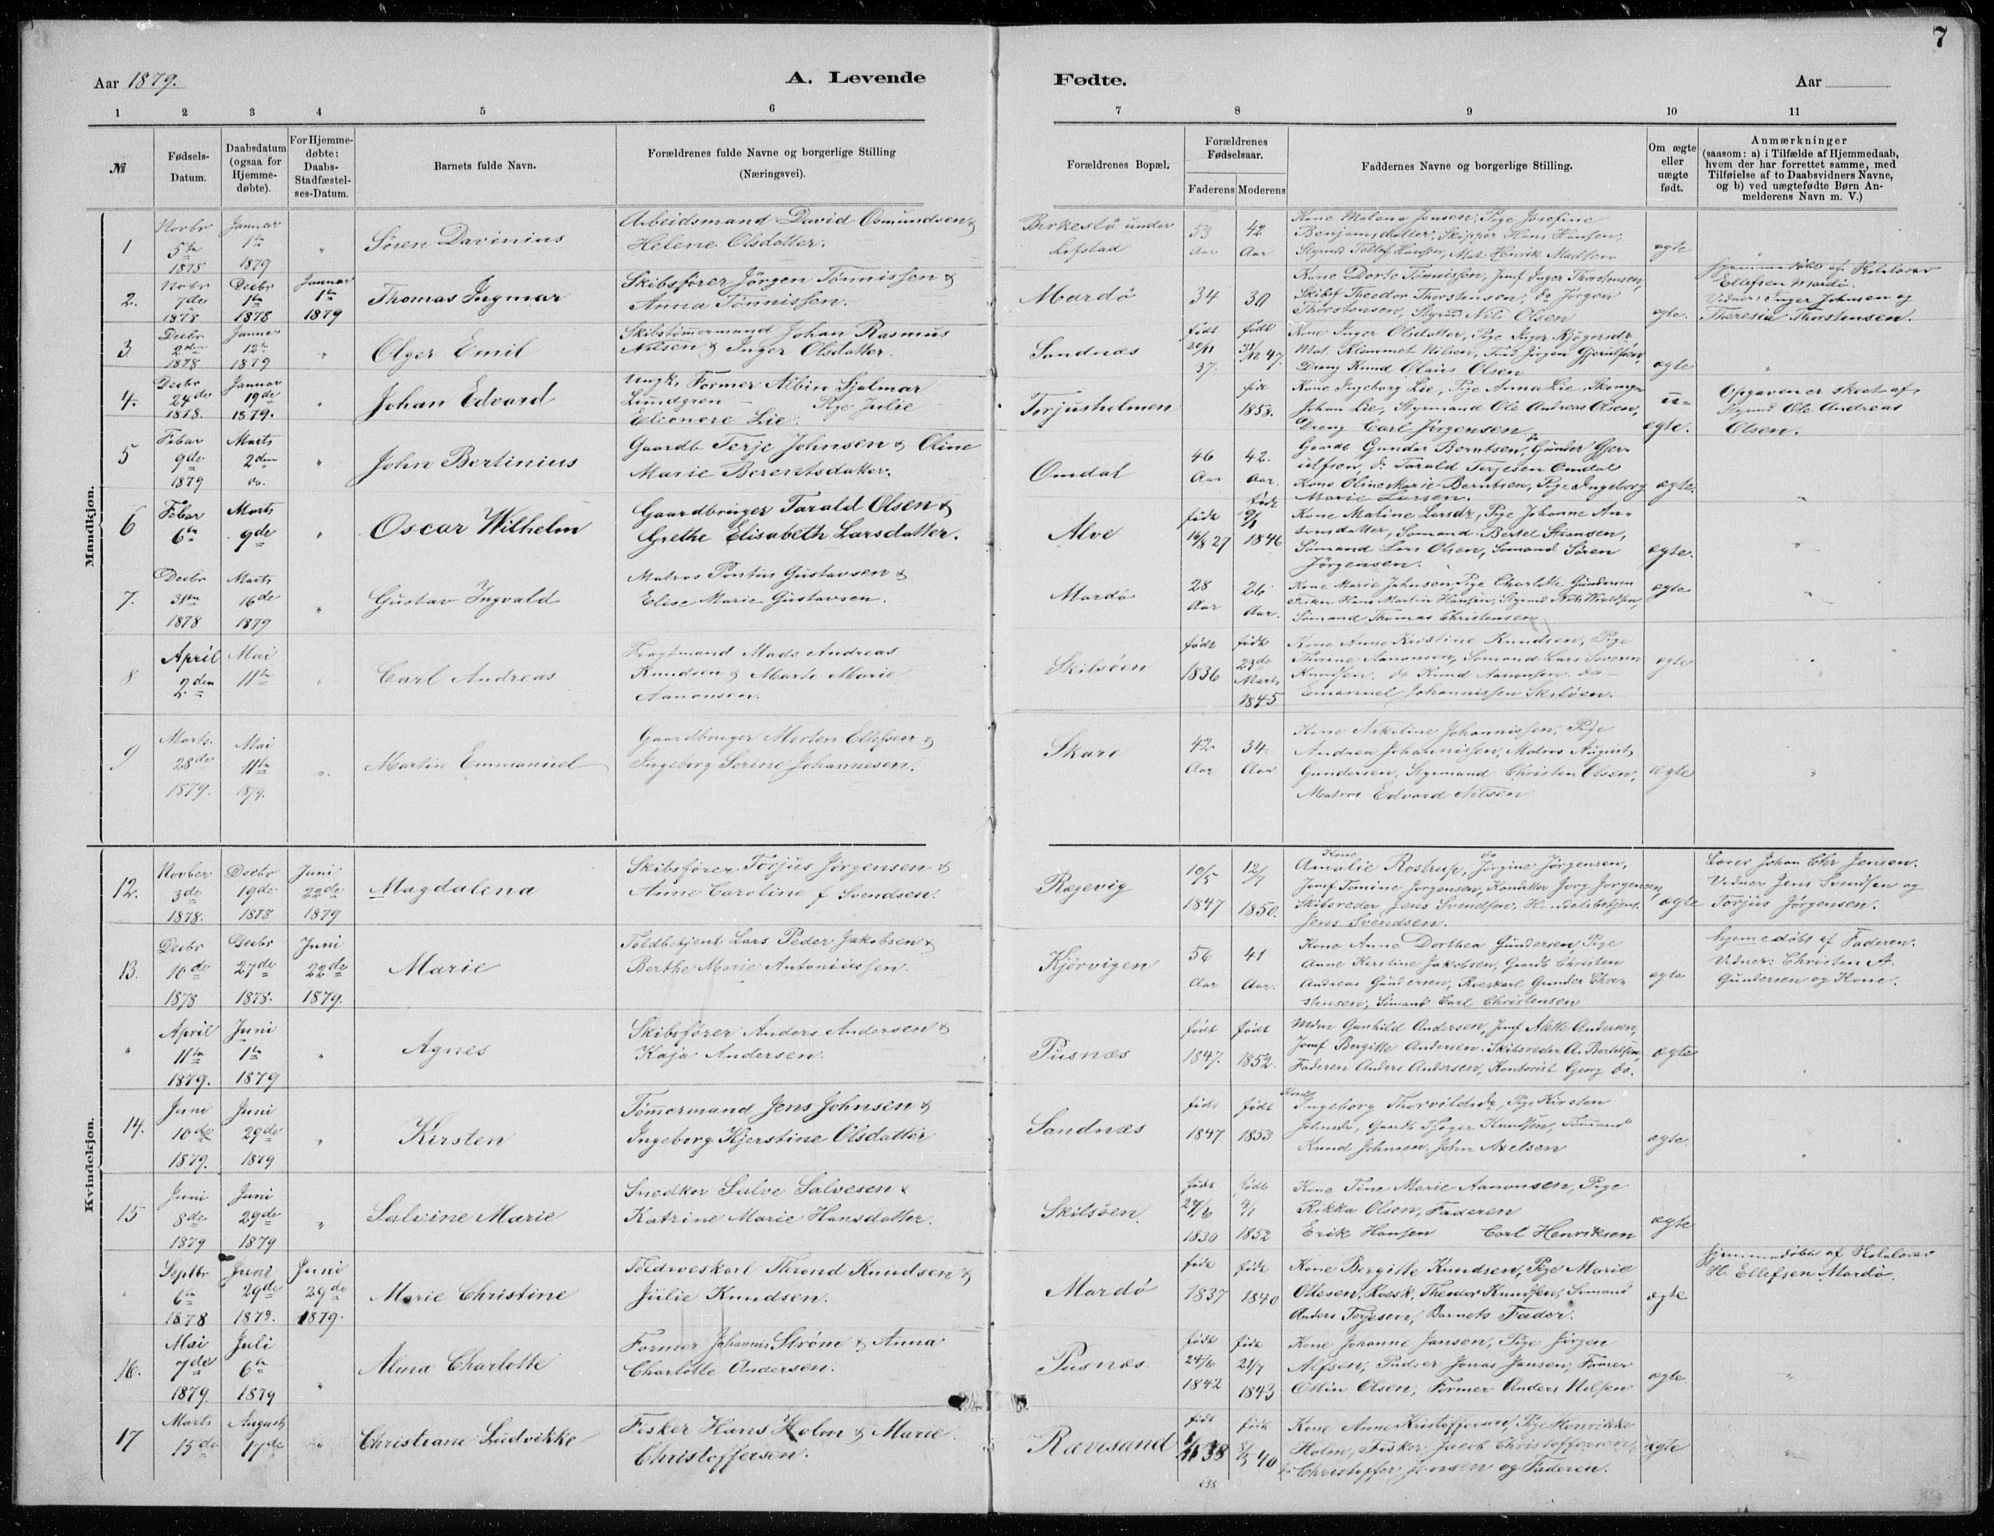 7
Aar 1879. A. Levende Fødte. Aar
1 2 3 4 5 6 7 8 9 10 11
№ Fødsels-Datum. Daabsdatum (ogsaa for Hjemmedøbte). For Hjemmedøbte: Daabs-Stadfæstelses-Datum. Barnets fulde Navn. Forældrenes fulde Navne og borgerlige Stilling (Næringsvei). Forældrenes Bopæl. Forældrenes Fødselsaar. Faderens Moderens Faddernes Navne og borgerlige Stilling. Om ægte eller uægte født. Anmærkninger (saasom: a) i Tilfælde af Hjemmedaab, hvem der har forrettet samme, med Tilføielse af to Daabsvidners Navne, og b) ved uægtefødte Børn Anmelderens Navn m. V.)
Mandkjøn.
1 Novbr 5te 1878 Januar 1te 1879 " Søren Davinius
Arbeidsmand David Osmundsen &
Helene Olsdatter.
Birkestø under
Løfstad
53 Aar 42 Aar
Kone Malene Jensen, Pige Josefine
Benjamsdatter, Skipper Hans Hansen,
ægte
2. Novbr 7de 1878 Decbr 1te 1878 Januar 1te 1879 Thomas Ingmar
Skibsfører Jörgen Tønnissen &
Anna Tønnissen.
Mardø
34 30
Kone Dorte Tønnissen, Jomf Inger Thorstensen,
Skibsf Theodor Thorstensen, do Jørgen
Thorstensen, Styrmd Nils Olsen
ægte.
Hjemmedøbt af
Ellefsen Mardø.
Vidner: Inger Johnsen og
Theresia Thorstensen.
3. Decbr 2den 1878 Januar 12te 1879 " Olger Emil
Skibstømmermand Johan Rasmus
Nilsen & Inger Olsdatter.
Sandnæs
født 20/11 37. født 31/12 47.
Kone Inger Olsdatter, Pige Inger
Mat. Klemmet Nilsen,
Dreng Knud Olaus Olsen
ægte
4. Decbr 24de 1878. Januar 19de 1879. " Johan Edvard
Ungk. Former Albin Hjalmar
Lundgren — Pige Julie
Eleonore Lie.
Torjusholmen
født 1853.
Kone Ingeborg Lie, Pige Anna Lie,
Johan Lie, Styrmand Ole Andreas Olsen,
Dreng Carl Jørgensen
u-
ægte.
Opgaven er skeet af
Styrmd Ole Andreas
Olsen.
5 Febar 9de 1879 Marts 2den do. " John Bertinius
Gaardb Terje Johnsen & Oline
Marie Berentsdatter.
Omdal
46 Aar 42. Aar.
Gaardb Gunder Berntsen, Gunder Gjer-
ulfsen, do Tarald Terjesen Omdal
Kone Oline Marie Berntsen, Pige Ingeborg
Marie Larsen.
ægte.
6 Febar 6te Marts 9de " Oscar Wilhelm
Gaardbruger Tarald Olsen &
Grethe Elisabeth Larsdatter.
Alve
født 14/8 27 født 9/1 1846
Kone Maline Larsdr, Pige Johanne An-
tonsdatter, Sømand Bertel Hansen,
Sømand Lars Olsen, Sømand Søren
Jørgensen.
ægte.
7. Decbr 31te 1878 Marts 16de 1879 " Gustav Ingvald
Matros Pontus Gustavsen &
Elise Marie Gustavsen.
Mardø
28 Aar 26 Aar.
Kone Marie Johansen, Pige Charlotte Gundersen
Fisker Hans Martin Hansen,
Sømand Thomas Christensen
ægte
8 April 2den Mai 11te " Carl Andreas
Fragtmand Mads Andreas
Knudsen & Marte Marie
Aanonsen.
Skilsøen
født 1836 født 23de Marts 1845
Kone Anne Kristine Knudsen, Pige
Thorine Aanonsen, Sømand Lars Severin
Knudsen. do Knud Aanonsen. do
Emanuel Johannissen Skilsøen.
ægte
9 Marts. 28de 1879. Mai 11te 1879. " Martin Emmanuel
Gaardbruger Morten Ellefsen &
Ingeborg Serine Johannesen.
Skare
42. Aar 34. Aar
Kone Askeline Johannissen, Pige
Andrea Johannissen, Matros August
Gundersen, Styrmand Christen Olsen,
Matros Edvard Nilsen
ægte
Kvindekjøn.
12. Novber 3de 1878. Decbr 19de 1878 Juni 22de 1879 Magdalena
Skibsfører Torjus Jørgensen &
Anne Caroline f Svendsen.
Rægevig
10/5 1847 12/7 1850.
Kone Amalie Rostrup, do Jørgine Jørgensen,
Jomf Tomine Jørgensen, Jørg Jørgensen,
Skibsreder Jens Svendsen,
Jens Svendsen.
ægte
Lærer Johan Chr Jensen.
Vidner Jens Svendsen og
Torjus Jørgensen.
13. Decbr 10de 1878 Decbr 27de 1878. Juni 22de 1879. Marie
Toldbetjent Lars Peder Jakobsen &
Berthe Marie Antoniussen.
Kjørvigen
56 Aar 41 Aar.
Kone Anne Dorthea Gundersen, Pige
Anne Kirstine Jakobsen, Gaardb Christen
Andreas Gundersen, Roeskarl Gunder Chri-
stensen, Sømand Carl Christensen
ægte
hjemmedøbt af Faderen.
Vidner: Christen A.
Gundersen og Kone.
" April 11te 1879. Juni 1te 1879 " Agnes
Skibsfører Anders Andersen &
Kaja Andersen.
Pusnæs
født 1847. født 1852.
Mdm Gunhild Andersen, Jomf Alette Andersen,
Jomf Bergitte Andersen. Skibsreder A. Bertelsen,
Faderen Anders Andersen, Kontorist Georg do.
ægte
14. Juni 10de 1879. Juni 29de 1879 " Kirsten
Tømmermand Jens Johnsen &
Ingeborg Kjerstine Olsdatter
Sandnæs
født 1847 født 1853
Kone Ingeborg Thorvildsdr, Pige Kirsten
Johnsdr, Gaardb Knudsen, Sømand
Knud Johnsen, John Axelsen
ægte.
15 Juni 8de 1879 Juni 29de 1879 " Salvine Marie
Snedker Salve Salvesen &
Katrine Marie Hansdatter.
Skilsøen.
født 27/6 1830 født 4/1 1852
Kone Tine Marie Aanonsen, Pige
Rikka Olsen, Faderen
Erik Hansen Carl Henriksen
ægte
" Septbr 6te 1878 Juni 29de 1879. Juni 29de 1879. Marie Christine
Toldroeskarl Thrond Knudsen &
Julie Knudsen.
Mardø
født 1837 født 1840
Kone Bergitte Knudsen, Pige Marie
Ottesen, Roesk. Theodor Knudsen, Sømand
Anders Terjesen, Barnets Fader.
ægte
hjemmedøbt af
H. Ellefsen Mardø.
16. Mai 7de 1879 Juli 6te 1879 " Alma Charlotte
Former Johannes Strøm & Anna
Charlotte Andersen.
Pusnæs.
født 24/6 1842 født 21/7 1843
Kone Johanne Jansen, Pige Jørgen
Alfsen, Pudser Jonas Jansen, Former
Ottin Olsen, Former Anders Nilsen
ægte
17 Marts 15de August 17de " Christiane Ludvikke
Fisker Hans Holm & Marie
Christoffersen.
Rævesand
født 1/11 38 født 8/3 40
Kone Anne Kristoffersen, Pige Henrikke
Holm, Fisker Jacob Christoffersen,
Christoffer Jensen og Faderen.
ægte